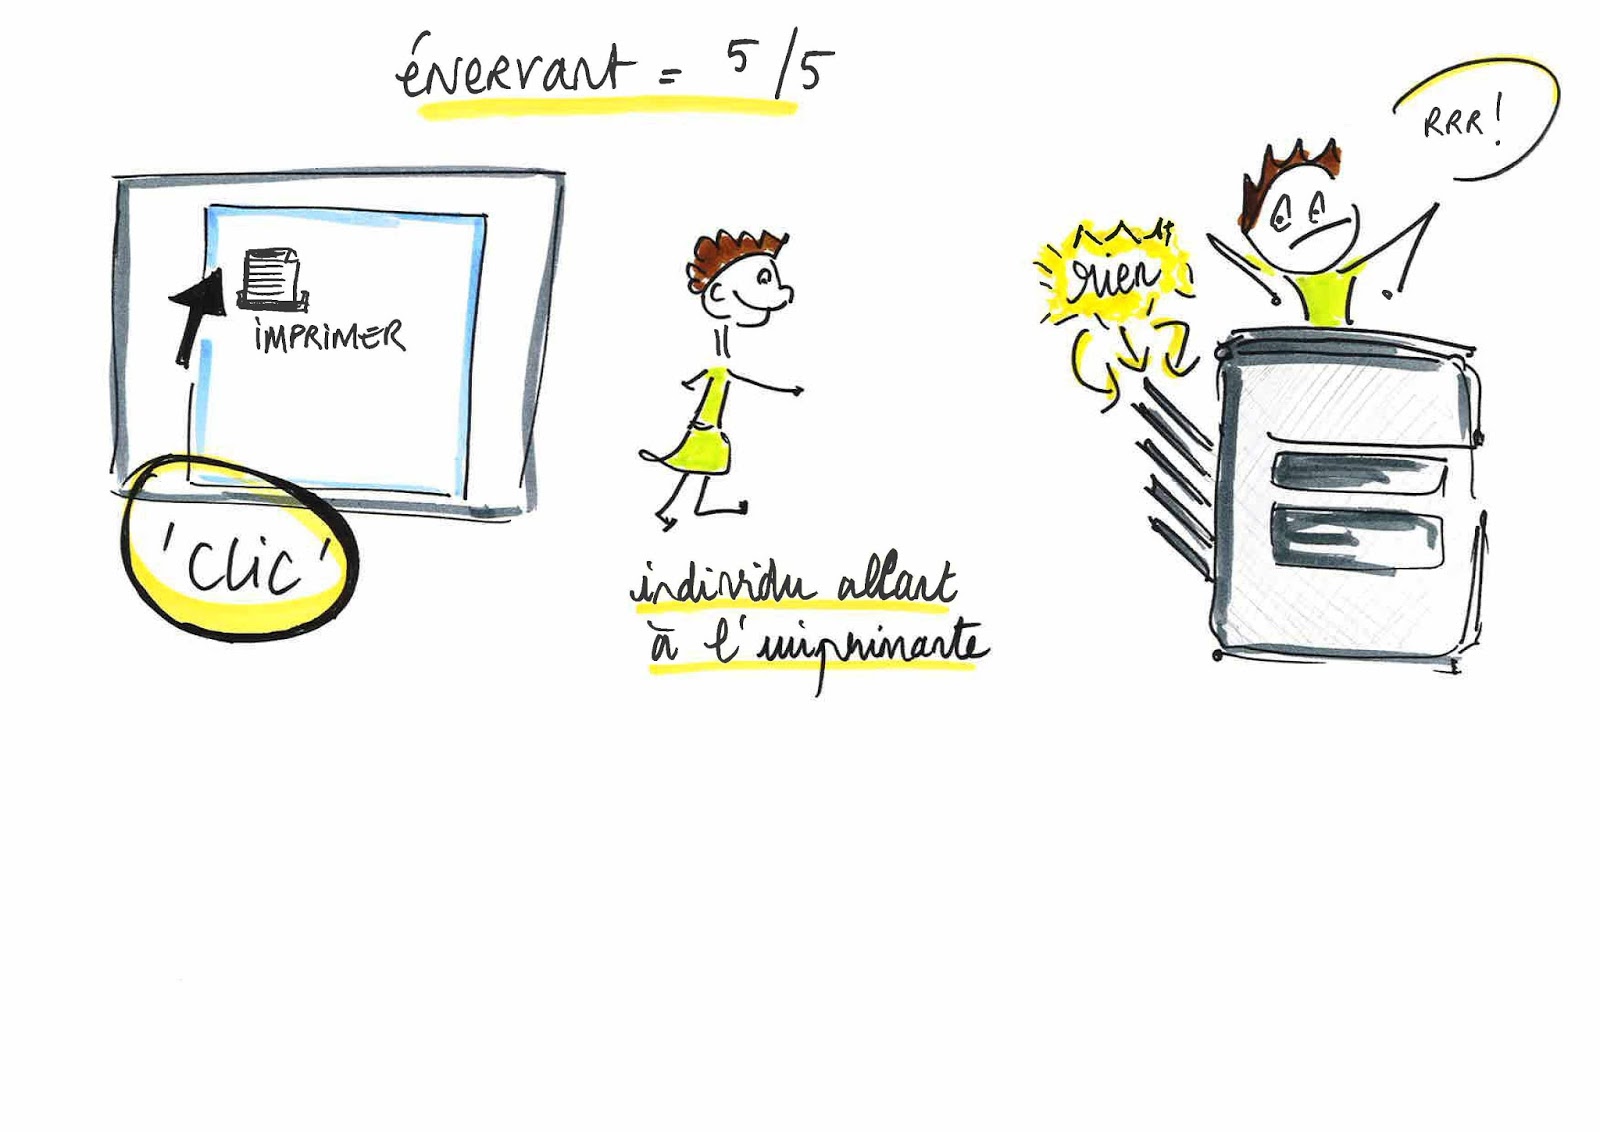 énervant = 5/5
RRR!
rien
IMPRIMER
'clic'
individu allant
à l'imprimante